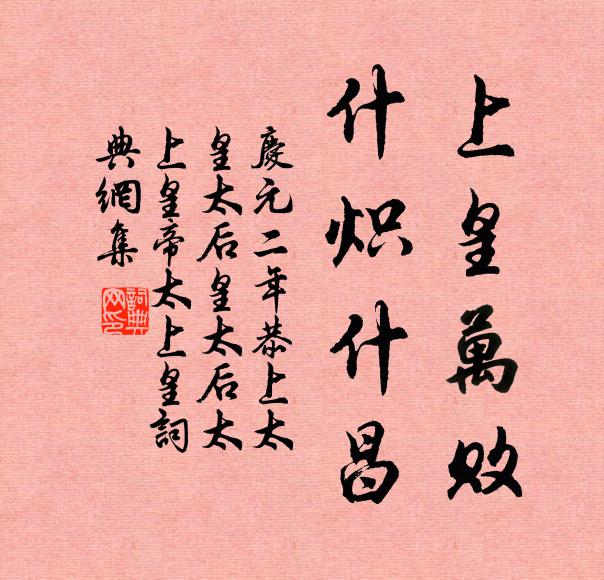 上皇萬败
什炽什昌
慶元二年恭上太
皇太后皇太后太
上皇帝太上皇詞
典網集
詞典
网印